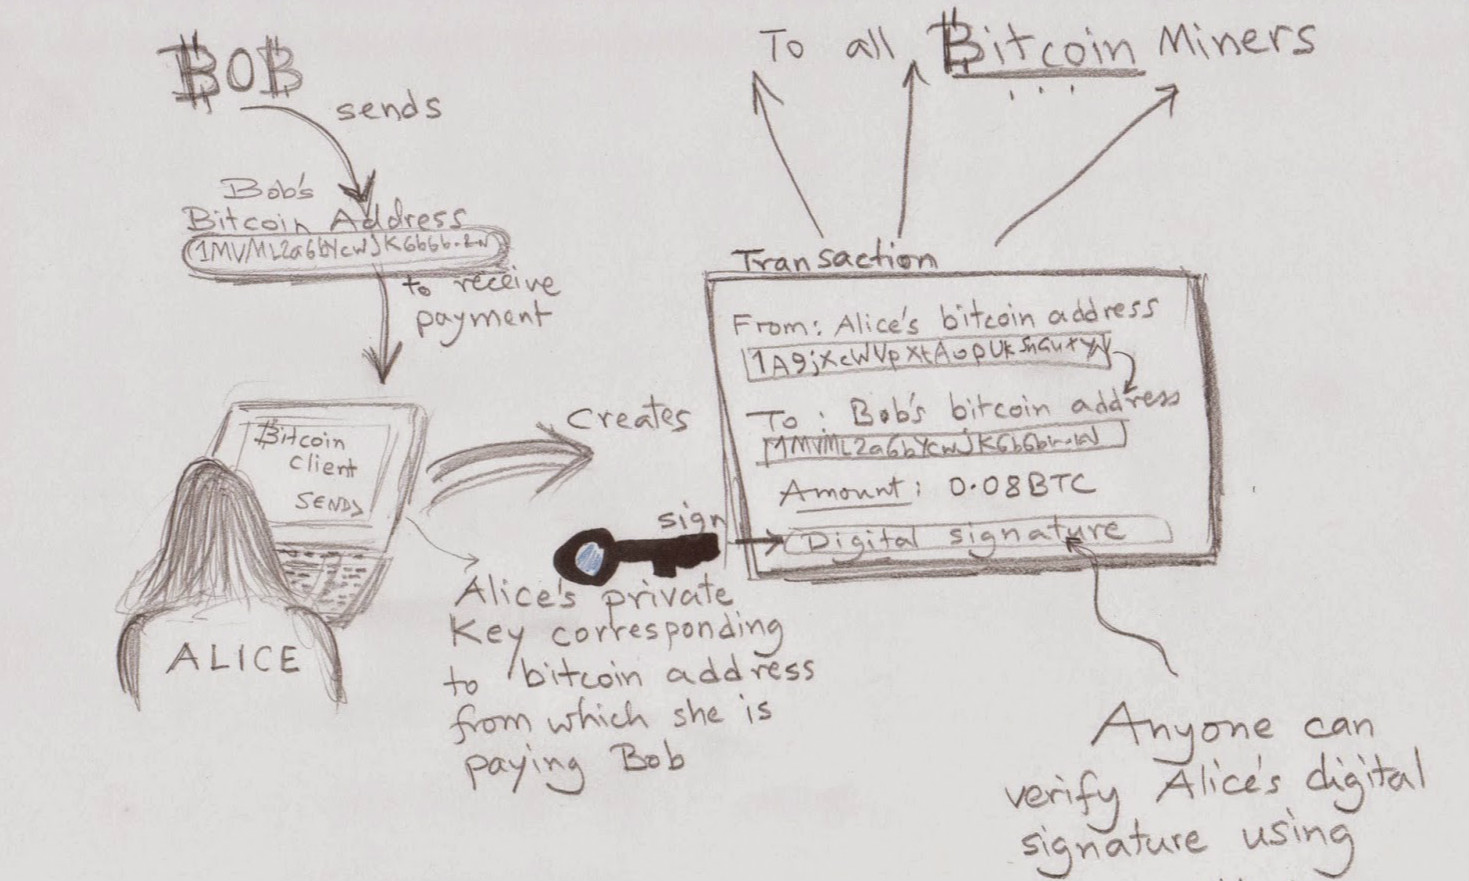 BOB
sends
Bob's
Bitcoin Address
to receive
payment
Bitcoin
client
SEND>
ALICE
Creates
sign
Alice's private
Key corresponding
to bitcoin address
from which she is
paying Bob
To all Bitcoin Miners
...
Transaction
From: Alice's bitcoin address
To: Bob's bitcoin address
Amount: 0.08BTC
Digital signature
Anyone can
verify Alice's digital
signature using